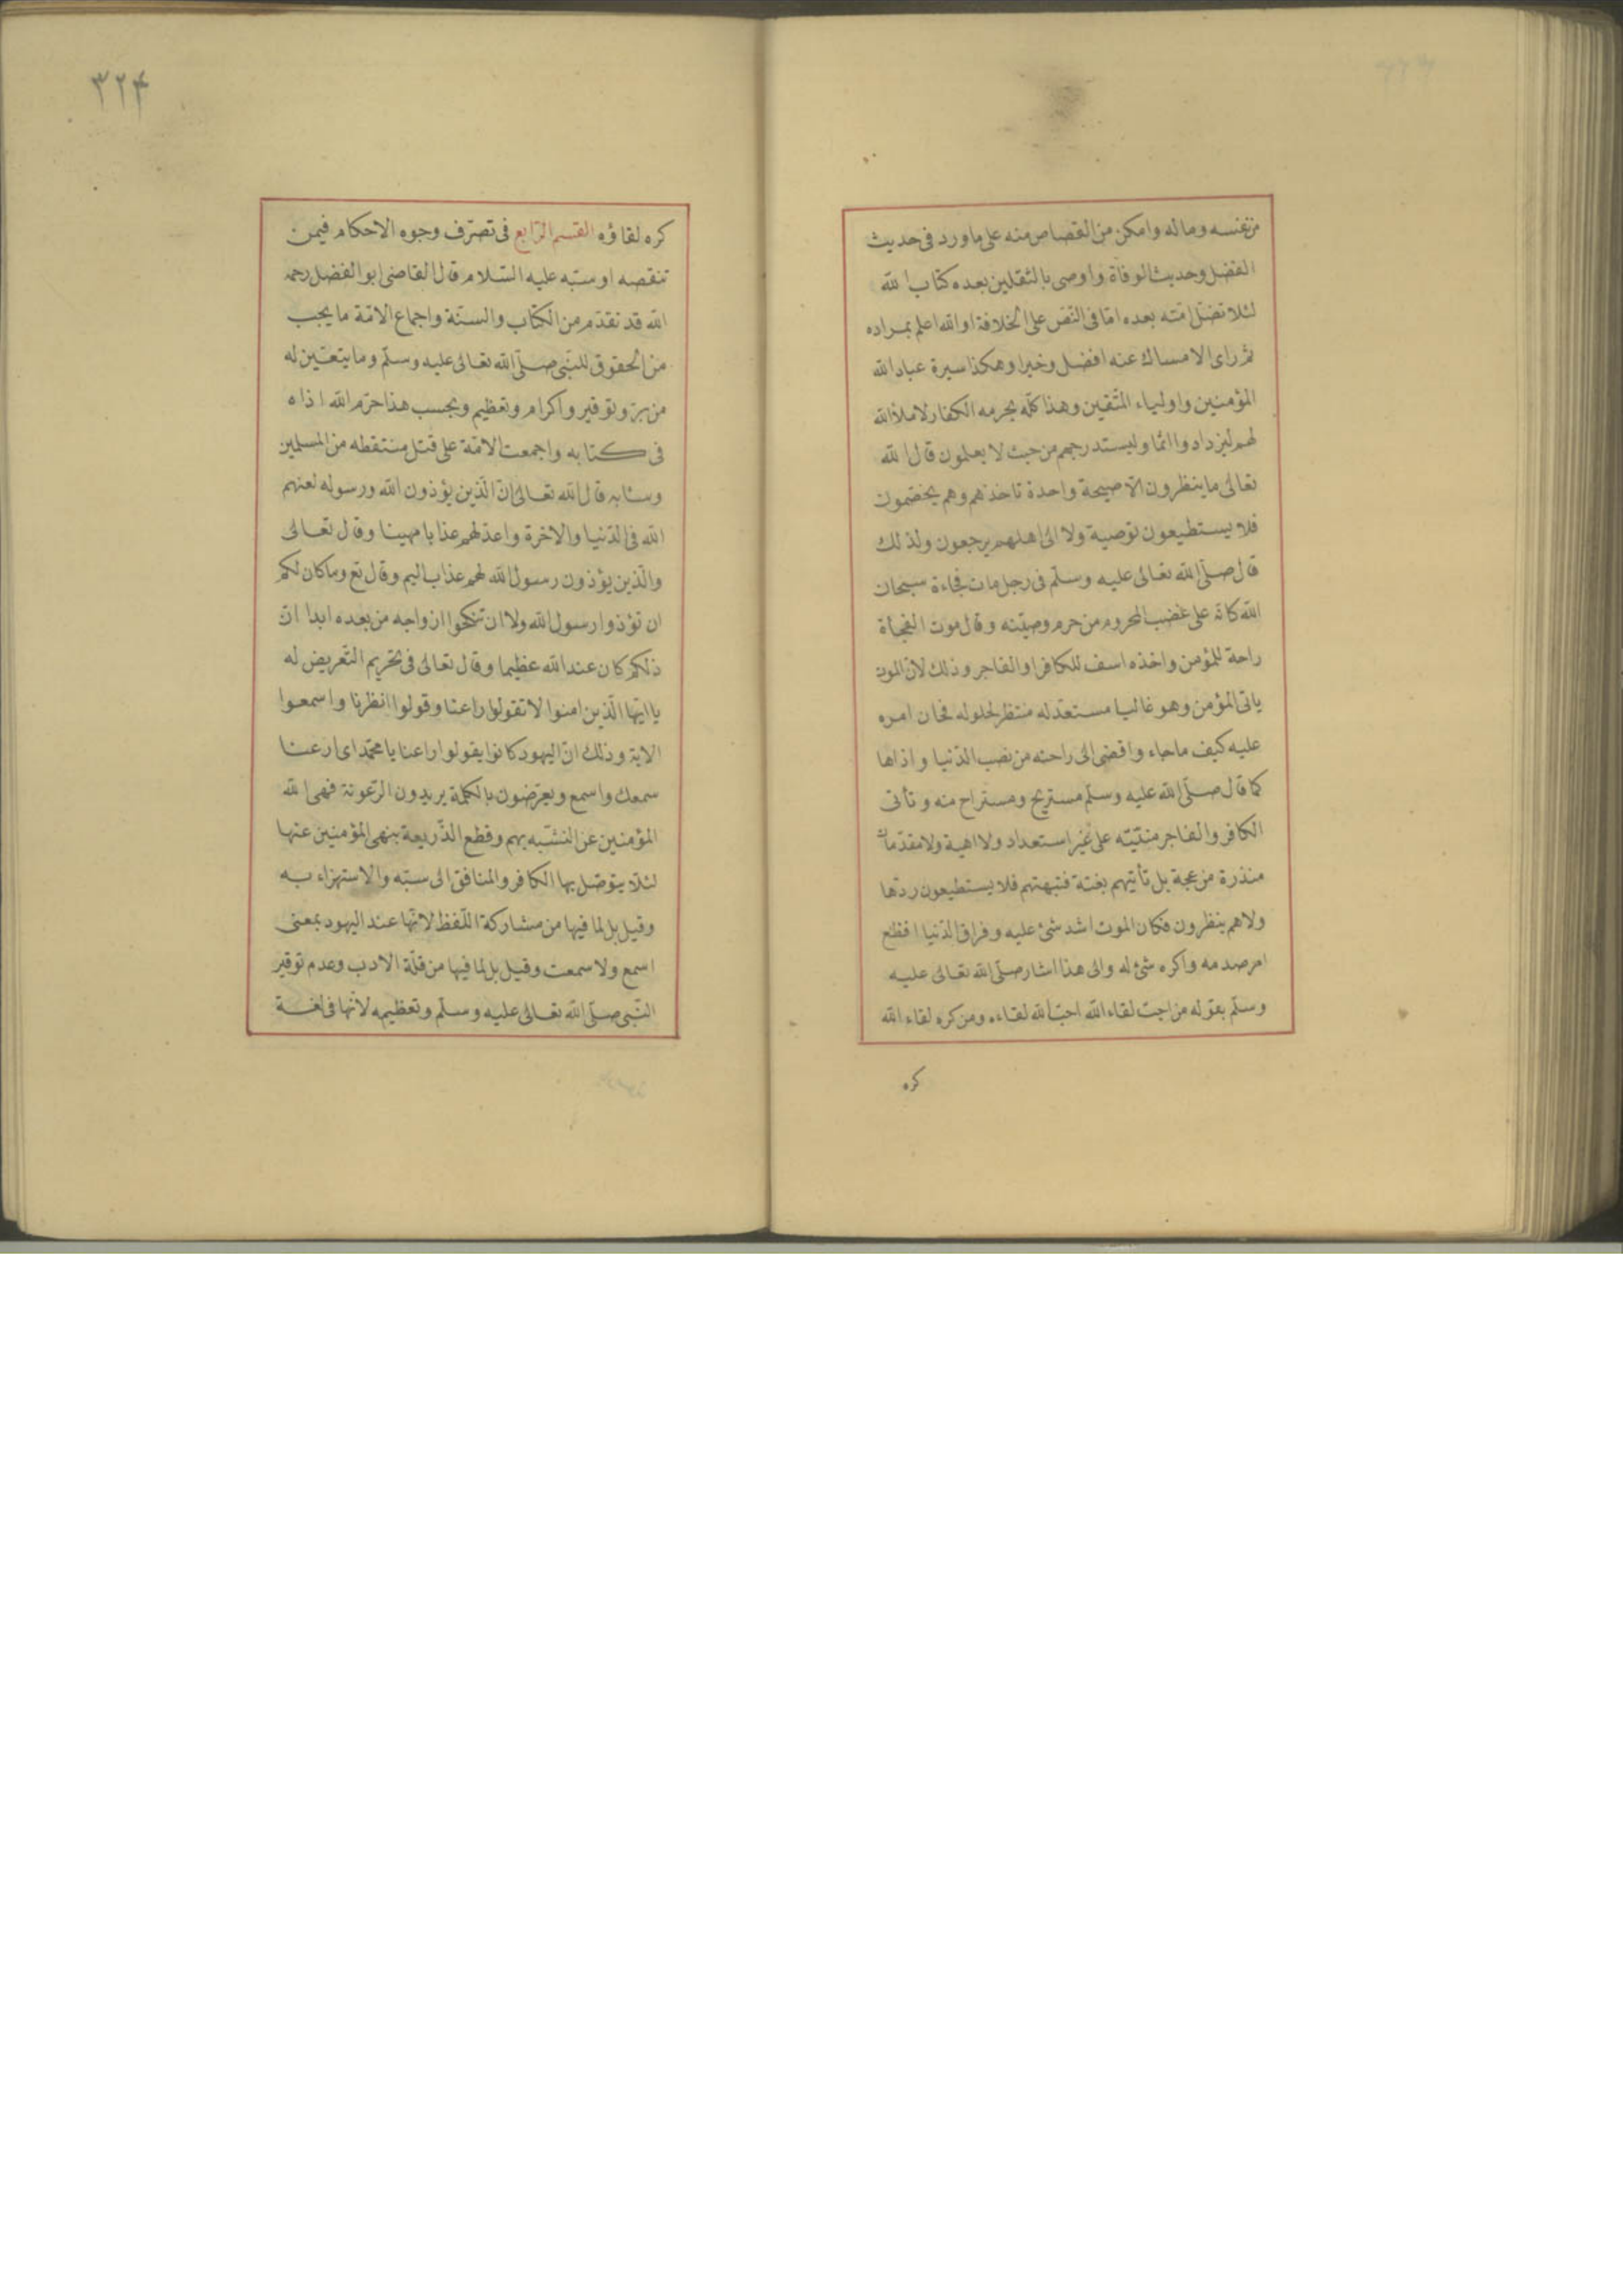 من نفسه وماله وامكن من القصاص منه على ما ورد فى حديث
الفضل وحديث الوفاة واوصى بالثقلين بعده كتاب الله
لئلا تضلّ امّته بعده امّا فى النصّ على الخلافة او الله اعلم بمراده
ثم راى الامساك عنه افضل وخيرا وهكذا سيرة عباد الله
المؤمنين واولياء المتّقين وهذا كلّه يحرمه الكفار لاملأ الله
لهم ليزدادوا اثما وليستدرجهم من حيث لا يعلمون قال الله
تعالى ما ينظرون الّا صيحة واحدة تاخذهم وهم يخصّمون
فلا يستطيعون توصية ولا الى اهلهم يرجعون ولذلك
قال صلّى الله تعالى عليه وسلّم فى رجل مات فجاءة سبحان
الله كانّه على غضب المحروم من حرم وصيّته وقال موت الفجأة
راحة للمؤمن واخذه اسف للكافر او الفاجر وذلك لانّ الموت
ياتى المؤمن وهو غالبا مستعدّ له منتظر لحلوله فحان امره
عليه كيف ما جاء وافضى الى راحته من نصب الدّنيا واذاها
كما قال صلّى الله عليه وسلّم مستريح ومستراح منه وتأتى
الكافر والفاجر منيّته على غير استعداد ولا اهبة ولا مقدّمات
منذرة مزعجة بل تأتيهم بغتة فتبهتهم فلا يستطيعون ردّها
ولا هم ينظرون فكان الموت اشد شئ عليه وفراق الدّنيا افظع
امر صدمه واكره شئ له والى هذا اشار صلّى الله تعالى عليه
وسلّم بقوله من احبّ لقاء الله احبّ الله لقاءه ومن كره لقاء الله
كره
٣٢۴
كره لقاؤه القسم الرّابع فى تصرّف وجوه الاحكام فيمن
تنقصه او سبّه عليه السّلام قال القاضى ابو الفضل رحمه
الله قد تقدّم من الكتاب والسنّة واجماع الامّة ما يجب
من الحقوق للنّبى صلّى الله تعالى عليه وسلّم وما يتعيّن له
من برّ وتوقير واكرام وتعظيم وبحسب هذا حرّم الله اذاه
فى كتابه واجمعت الامّة على قتل منتقصه من المسلمين
وسابه قال الله تعالى انّ الّذين يؤذون الله ورسوله لعنهم
الله فى الدّنيا والاخرة واعدّ لهم عذابا مهينا وقال تعالى
والّذين يؤذون رسول الله لهم عذاب اليم وقال تع وما كان لكم
ان تؤذوا رسول الله ولا ان تنكحوا ازواجه من بعده ابدا انّ
ذلكم كان عند الله عظيما وقال تعالى فى تحريم التّعريض له
يا ايّها الّذين امنوا لا تقولوا راعنا وقولوا انظرنا واسمعوا
الاية وذلك انّ اليهود كانوا يقولوا راعنا يا محمّد اى ارعنا
سمعك واسمع ويعرّضون بالكلمة يريدون الرّعونة فنهى الله
المؤمنين عن التشبّه بهم وقطع الذّريعة بنهى المؤمنين عنها
لئلّا يتوصّل بها الكافر والمنافق الى سبّه والاستهزاء به
وقيل بل لما فيها من مشاركة اللّفظ لانّها عند اليهود بمعنى
اسمع ولا سمعت وقيل بل لما فيها من قلّة الادب وعدم توقير
النّبى صلّى الله تعالى عليه وسلّم وتعظيمه لانّها فى لغة